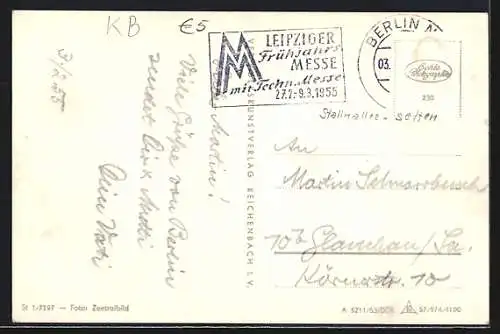 KB
€5
LEIPZIGER
Frühjahrs
MESSE
mit Techn. Messe
27.2.-9.3.1955
BERLIN
03.
Echte
230
Stallnallee - selten
3/2 55
Martin!
Viele Grüße von Berlin
sendet Dir u. Mutti
Dein Vati
KUNSTVERLAG REICHENBACH I. V.
An
Martin Schnarrbusch
10b Glauchau/Sa.
Körnerstr. 10
St 1-7297 — Foto: Zentralbild
A 5211/53/DDR